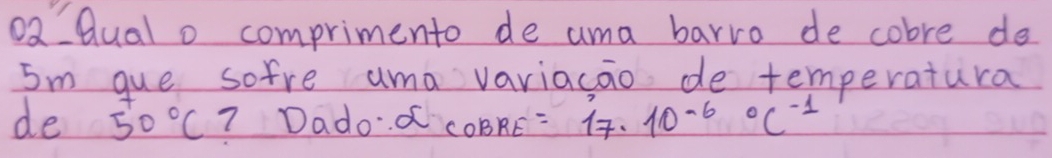 02-Qual o comprimento de uma barra de cobre de
5m que sofre uma variação de temperatura
de 50 °C? Dado: α COBRE = 17. 10⁻⁶ °C⁻¹